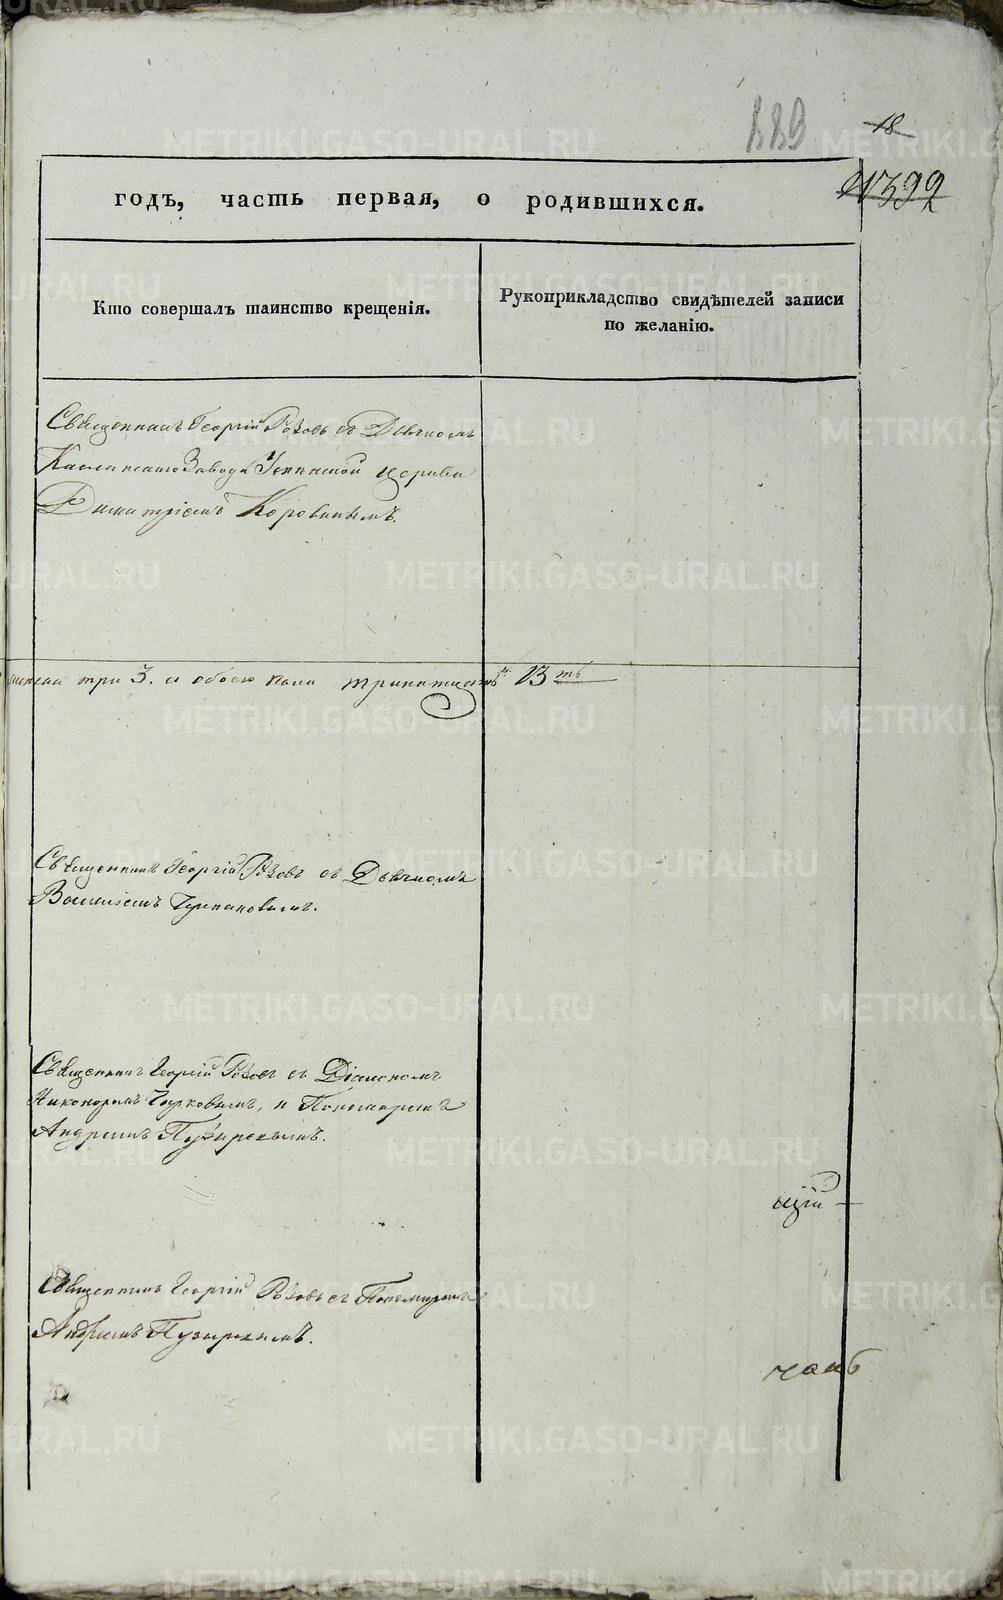 889
18
годъ, часть первая, о родившихся.
Кто совершалъ таинство крещенія.
Рукоприкладство свидѣтелей записи
по желанію.
Священникъ Георгій съ Дьячкомъ
Каслинскаго Завода Успенской церкви
Димитріемъ Коровинымъ.
три 3. а обоего пола тринатцать 13ть
Священникъ Георгій съ Дьячкомъ
Василіемъ
Священникъ Георгій съ Діакономъ
Никоноромъ и Пономаремъ
Андреемъ Пузыревымъ.
Священникъ Георгій съ Пономаремъ
Андреемъ Пузыревымъ.
METRIKI.GASO-URAL.RU